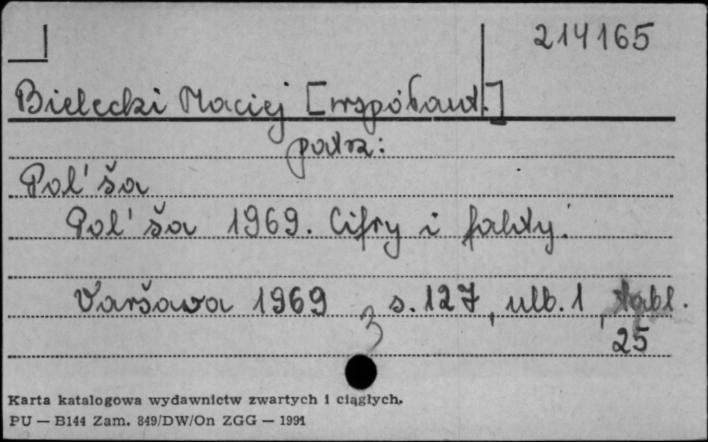 214165
Bielecki Maciej [współaut.]
patrz:
Pol'ša
Pol'ša 1969. Cifry i fakty.
Varšava 1969 s. 127, ulb. 1, tabl.
3
25
Karta katalogowa wydawnictw zwartych i ciągłych.
PU — B144 Zam. 849/DW/On ZGG — 1991